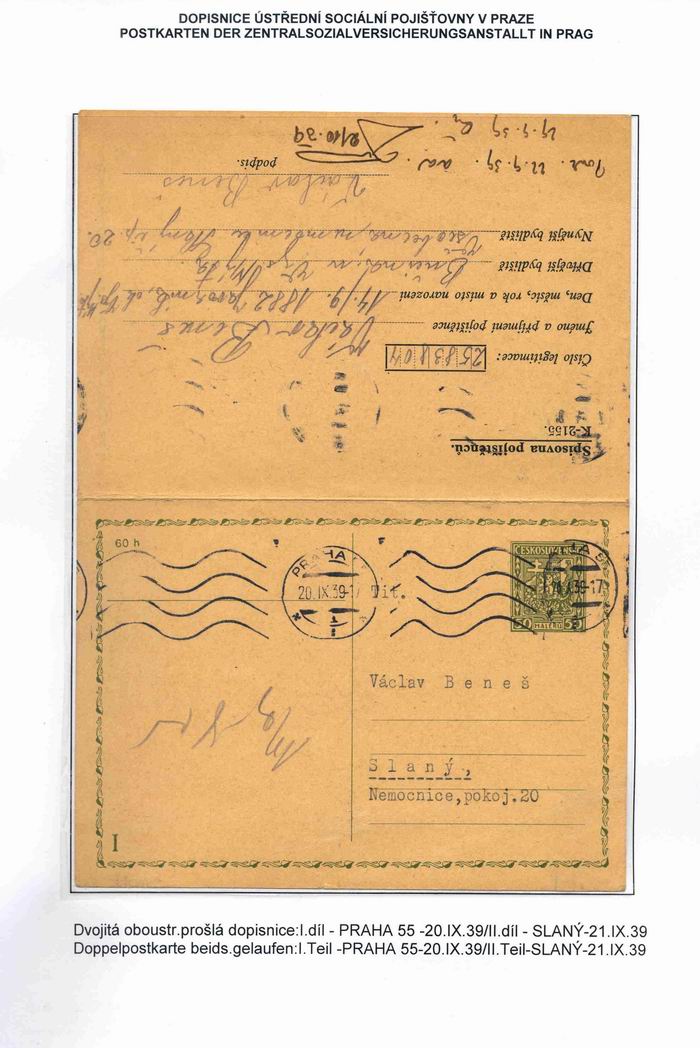 DOPISNICE ÚSTŘEDNÍ SOCIÁLNÍ POJIŠŤOVNY V PRAZE
POSTKARTEN DER ZENTRALSOZIALVERSICHERUNGSANSTALLT IN PRAG
Spisovna pojištěnců.
K-2155.
Číslo legitimace: 2583804
Jméno a příjmení pojištěnce Václav Beneš
Den, měsíc, rok a místo narození 14/9 1882
Dřívější bydliště
Nynější bydliště čp. 20.
Václav Beneš
podpis.
22.9.39
29.9.39
2/10.39
60 h
PRAHA
20.IX.39-17
ČESKOSLOVENSKO
50 HALÉŘŮ 50
Tit.
Václav Beneš
Slaný,
Nemocnice,pokoj.20
I
Dvojitá oboustr.prošlá dopisnice:I.díl - PRAHA 55 -20.IX.39/II.díl - SLANÝ-21.IX.39
Doppelpostkarte beids.gelaufen:I.Teil -PRAHA 55-20.IX.39/II.Teil-SLANÝ-21.IX.39